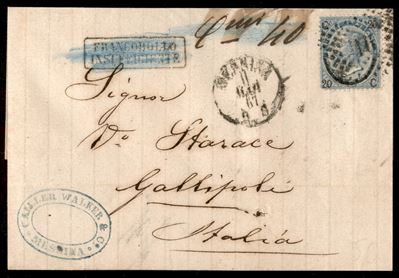 Cmi 40
FRANCOBOLLO
INSUFFICIENTE
MESSINA
20 C
Signor
Vo Starace
Gallipoli
Italia
CAILLER WALKER & Co.
MESSINA